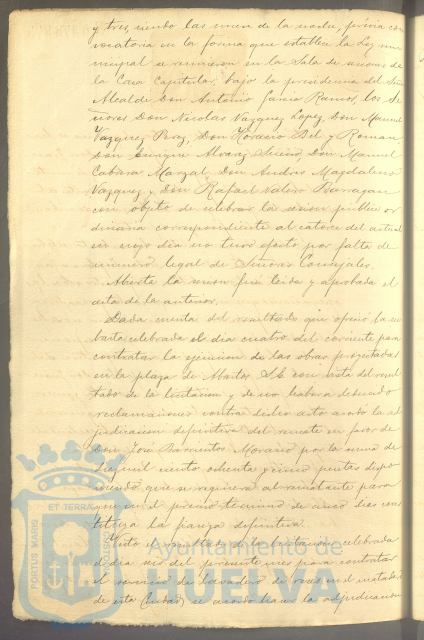 y tres, siendo las nueve de la noche, prévia con
vocatoria en la forma que establece la Ley mu
nicipal se reunieron en la Sala de sesiones de
la Casa Capitular, bajo la presidencia del Señor
Alcalde Don Antonio García Ramos, los Se
ñores Don Nicolas Vazquez Lopez, Don Manuel
Vazquez Perez, Don Horacio Bel y Roman,
Don Enrique Alvarez, Don Manuel
Cabrera Marzal, Don Andrés Magdaleno
Vazquez y Don Rafael Valero Barragan
con objeto de celebrar la sesion publica or
dinaria correspondiente al catorce del actual
en cuyo dia no tuvo efecto por falta de
número legal de Señores Concejales.
Abierta la sesion fué leida y aprobada el
acta de la anterior.
Dada cuenta del resultado que ofrecio la su
basta celebrada el dia cuatro del corriente para
contratar la ejecucion de las obras proyectadas
en la plaza de Abastos, S.E. con vista del resul
tado de la licitacion y de no haberse deducido
reclamaciones contra dicho acto acordó la ad
judicacion definitiva del remate en favor de
Don José Barrientos Morano por la suma de
mil ciento ochenta y cinco pesetas dispo
niendo que se requiera al rematante para
que en el preciso termino de cinco dias cons
tituya la fianza definitiva.
Visto el resultado de la licitacion celebrada
el dia seis del presente mes para contratar
el servicio de de reses en el matadero
de esta Ciudad, se acordó la adjudicacion
PORTUS MARIS
ET TERRAE
CUSTODIA
Ayuntamiento de
HUELVA